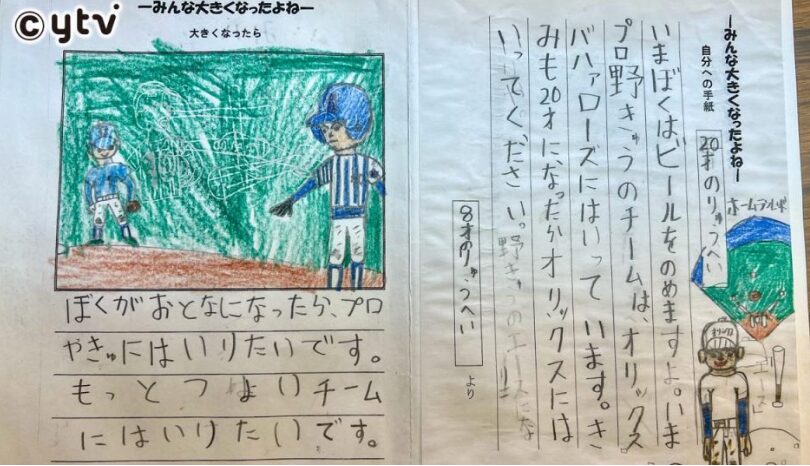 ©ytv
ーみんな大きくなったよねー
大きくなったら
ぼくがおとなになったら、プロ
やきゅにはいりたいです。
もっとつよいチーム
にはいりたいです。
ーみんな大きくなったよねー
自分への手紙
20才のりゅうへい
いまぼくはビールをのめますよ。いま
プロ野きゅうのチームは、オリックス
バハァローズにはいっています。き
みも20才になったらオリックスには
いってください。野きゅうのエースにな
8才のりゅうへい
より
ホームラン
エース